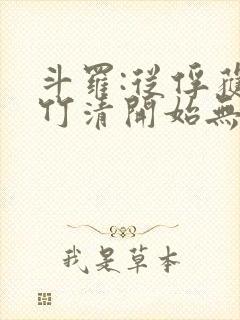 斗羅:從俘獲
竹清開始無
我是草本